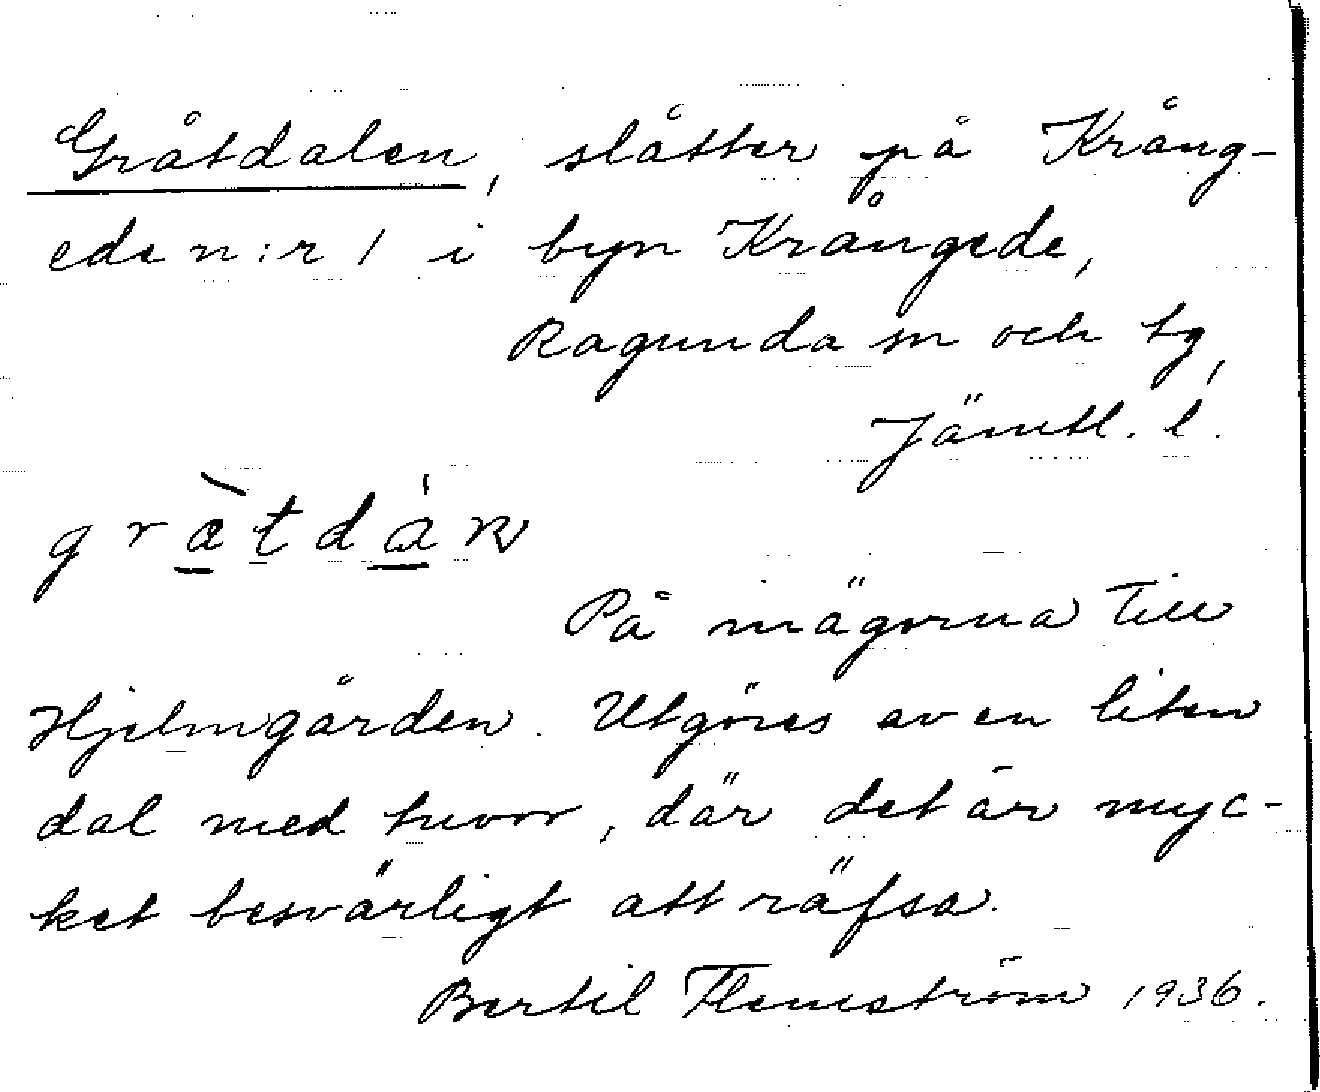 Gråtdalen, slåtter på Krång-
ede n:r 1 i byn Krångede,
Ragunda sn och tg,
Jämtl. l.
gràtdáɴ
På mägorna till
Hjelmgården. Utgöres av en liten
dal med tuvor, där det är myc-
ket besvärligt att räfsa.
Bertil Flemström 1936.